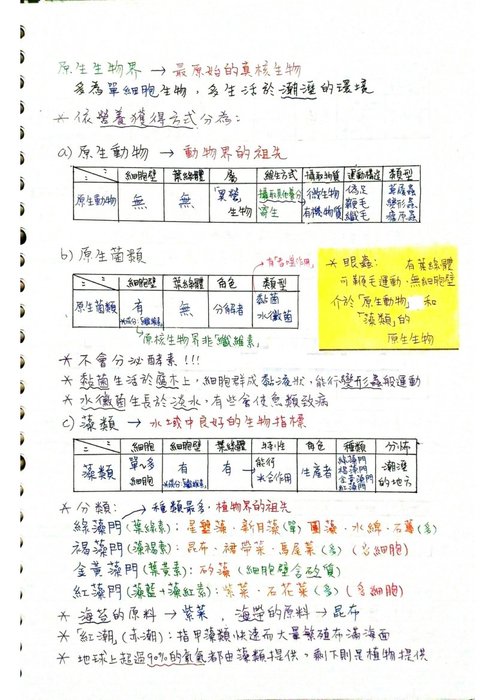 原生生物界 → 最原始的真核生物
多為單細胞生物，多生活於潮溼的環境
* 依營養獲得方式分為：
a) 原生動物 → 動物界的祖先
細胞壁 葉綠體 屬 維生方式 攝取物質 運動構造 類型
原生動物 無 無 「異營」生物 攝取其他養分 寄生 微生物 有機物質 偽足 鞭毛 纖毛 草履蟲 變形蟲 瘧原蟲
b) 原生菌類
有「吞噬作用」
細胞壁 葉綠體 角色 類型
原生菌類 有 *成分：「纖維素」 無 分解者 黏菌 水黴菌
原核生物界非「纖維素」
* 眼蟲： 有葉綠體
可鞭毛運動，無細胞壁
介於「原生動物」和
「藻類」的
原生生物
* 不會分泌酵素!!!
* 黏菌生活於腐木上，細胞群成黏液狀，能行變形蟲般運動
* 水黴菌生長於淡水，有些會使魚類致病
c) 藻類 → 水域中良好的生物指標
細胞 細胞壁 葉綠體 特性 角色 種類 分佈
藻類 單、多細胞 有 *成分「纖維素」 有 能行光合作用 生產者 綠藻門 褐藻門 金黃藻門 紅藻門 潮溼的地方
* 分類： → 種類最多，植物界的祖先
綠藻門(葉綠素)：星盤藻、新月藻(單) 團藻、水綿、石蓴(多)
褐藻門(藻褐素)：昆布、裙帶菜、馬尾藻(多) (含細胞)
金黃藻門(葉黃素)：矽藻(細胞壁含矽質)
紅藻門(藻藍+藻紅素)：紫菜、石花菜(多) (含細胞)
* 海苔的原料 → 紫菜，海帶的原料 → 昆布
* 「紅潮」(赤潮)：指甲藻類快速而大量繁殖布滿海面
* 地球上超過90%的氧氣都由藻類提供，剩下則是植物提供